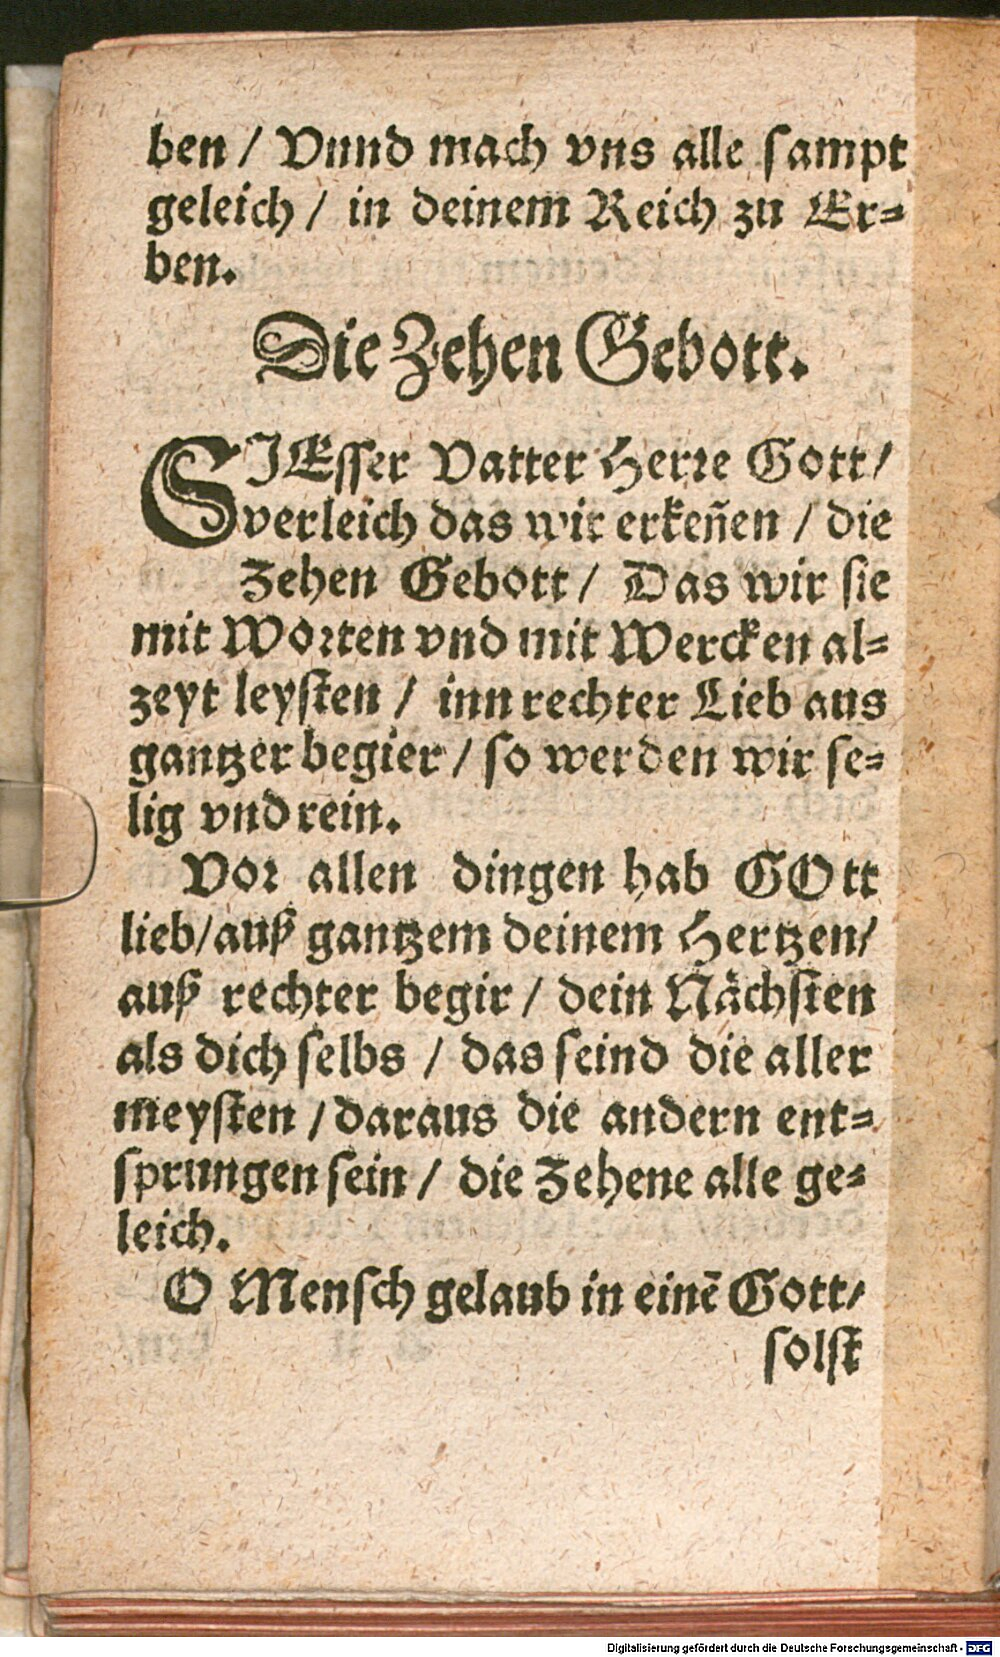 ben / Vnnd mach vns alle sampt
geleich / in deinem Reich zu Er⸗
ben.
Die Zehen Gebott.
SJEsser Vatter Herre Gott /
verleich das wir erkeñen / die
Zehen Gebott / Das wir sie
mit Worten vnd mit Wercken al⸗
zeyt leysten / inn rechter Lieb aus
gantzer begier / so werden wir se⸗
lig vnd rein.
Vor allen dingen hab GOtt
lieb / auß gantzem deinem Hertzen /
auß rechter begir / dein Nächsten
als dich selbs / das seind die aller
meysten / daraus die andern ent⸗
sprungen sein / die Zehene alle ge⸗
leich.
O Mensch gelaub in einē Gott /
solst
Digitalisierung gefördert durch die Deutsche Forschungsgemeinschaft - DFG